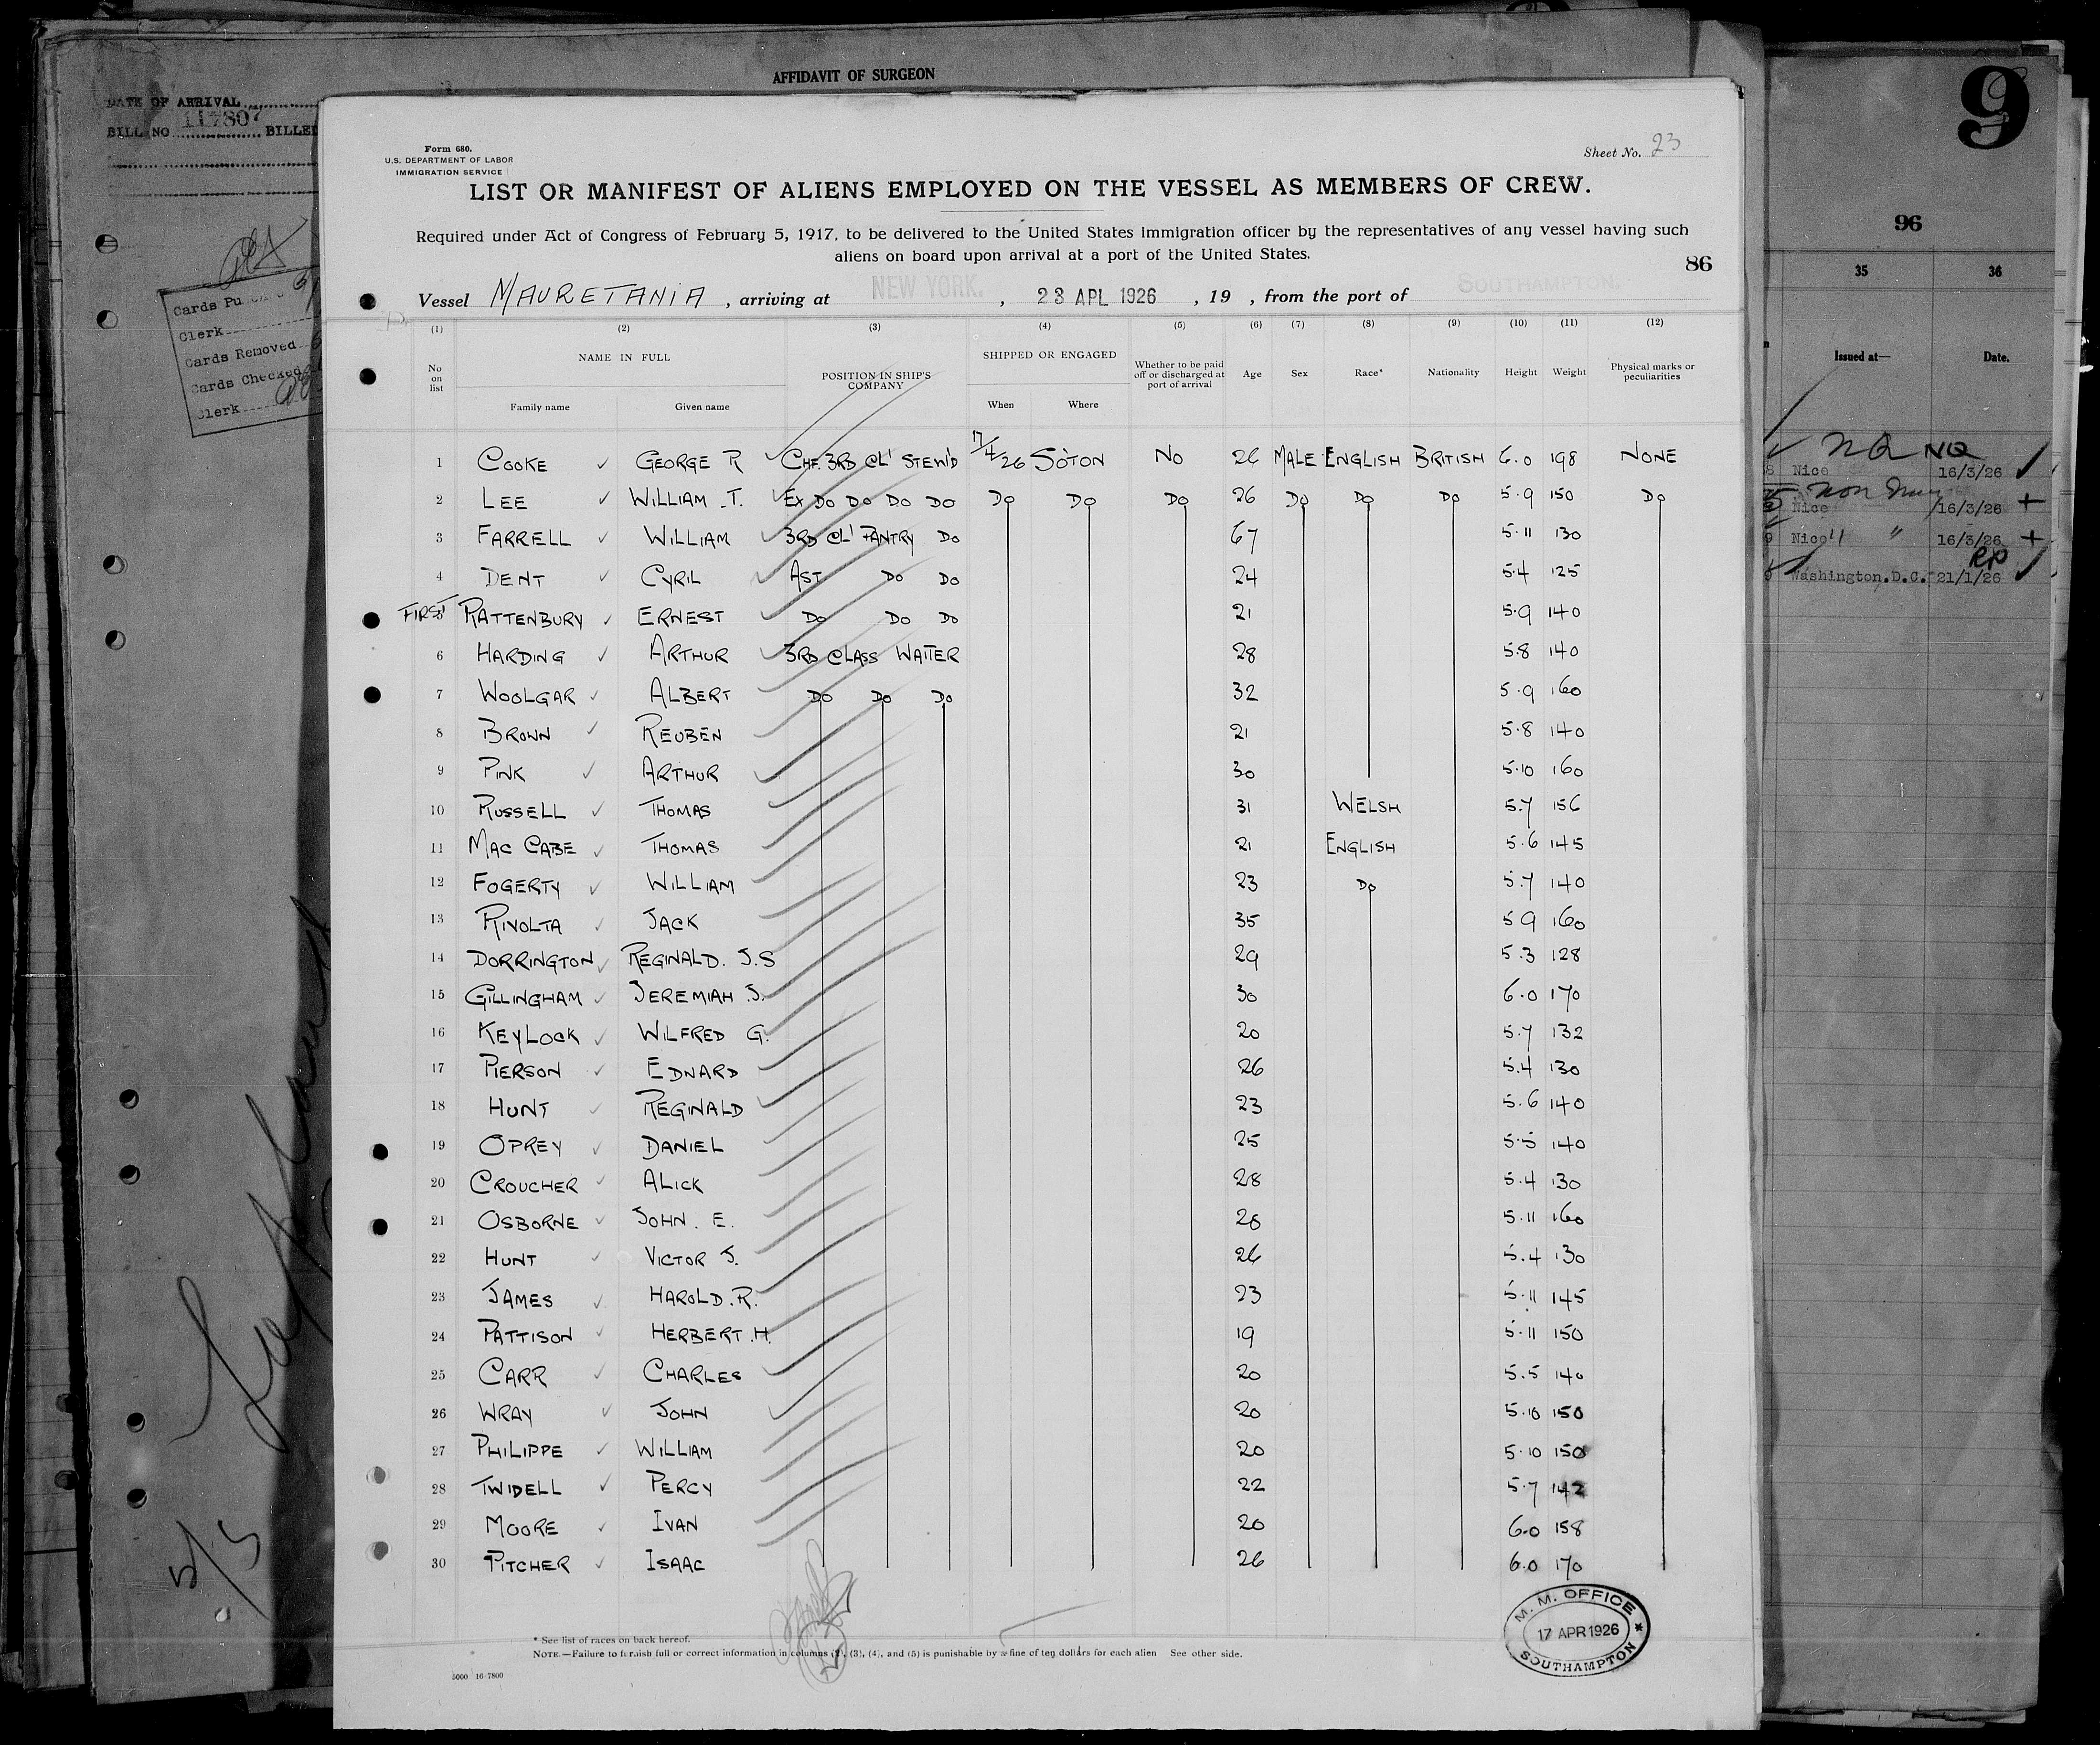 AFFIDAVIT OF SURGEON
DATE OF ARRIVAL
BILL NO 117807 BILLED
Cards Pu
Clerk
Cards Removed
Cards Checked
Clerk
5/5
9
96
35 36
Issued at— Date.
NQ NQ
Nice 16/3/26
Nice 16/3/26 +
Nice " " 16/3/26 +
RP
Washington.D.C. 21/1/26
Form 680.
U.S. DEPARTMENT OF LABOR
IMMIGRATION SERVICE
Sheet No. 23
LIST OR MANIFEST OF ALIENS EMPLOYED ON THE VESSEL AS MEMBERS OF CREW.
Required under Act of Congress of February 5, 1917, to be delivered to the United States immigration officer by the representatives of any vessel having such
aliens on board upon arrival at a port of the United States.
86
Vessel MAURETANIA , arriving at NEW YORK. , 23 APL 1926 , 19 , from the port of SOUTHAMPTON.
(1) (2) (3) (4) (5) (6) (7) (8) (9) (10) (11) (12)
No on list NAME IN FULL Family name Given name POSITION IN SHIP'S COMPANY SHIPPED OR ENGAGED When Where Whether to be paid off or discharged at port of arrival Age Sex Race* Nationality Height Weight Physical marks or peculiarities
1 COOKE GEORGE R CHF. 3RD CL' STEW'D 17/4/26 SO'TON NO 26 MALE ENGLISH BRITISH 6.0 198 NONE
2 LEE WILLIAM .T. EX DO DO DO DO DO DO DO 26 DO DO DO 5.9 150 DO
3 FARRELL WILLIAM 3RD CL' PANTRY DO 67 5.11 130
4 DENT CYRIL AST DO DO 24 5.4 125
FIRST 5 RATTENBURY ERNEST DO DO DO 21 5.9 140
6 HARDING ARTHUR 3RD CLASS WAITER 28 5.8 140
7 WOOLGAR ALBERT DO DO DO 32 5.9 160
8 BROWN REUBEN 21 5.8 140
9 PINK ARTHUR 30 5.10 160
10 RUSSELL THOMAS 31 WELSH 5.7 156
11 MAC CABE THOMAS 21 ENGLISH 5.6 145
12 FOGERTY WILLIAM 23 DO 5.7 140
13 RIVOLTA JACK 35 5 9 160
14 DORRINGTON REGINALD. J.S 29 5.3 128
15 GILLINGHAM JEREMIAH J. 30 6.0 170
16 KEYLOCK WILFRED G. 20 5.7 132
17 PIERSON EDWARD 26 5.4 130
18 HUNT REGINALD 23 5.6 140
19 OPREY DANIEL 25 5.5 140
20 CROUCHER ALICK 28 5.4 130
21 OSBORNE JOHN. E. 28 5.11 160
22 HUNT VICTOR J. 26 5.4 130
23 JAMES HAROLD.R. 23 5.11 145
24 PATTISON HERBERT.H. 19 5.11 150
25 CARR CHARLES 20 5.5 140
26 WRAY JOHN 20 5.10 150
27 PHILIPPE WILLIAM 20 5.10 150
28 TWIDELL PERCY 22 5.7 142
29 MOORE IVAN 20 6.0 158
30 PITCHER ISAAC 26 6.0 170
M. M. OFFICE
17 APR 1926
SOUTHAMPTON
* See list of races on back hereof.
NOTE.—Failure to furnish full or correct information in columns (2), (3), (4), and (5) is punishable by a fine of ten dollars for each alien See other side.
5000 16-7800